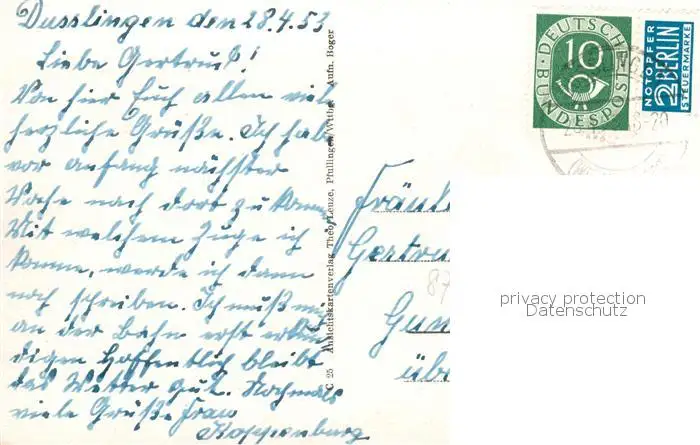 Dusslingen den 28.4.53
Liebe Gertrud!
Von hier Euch allen viel
herzliche Grüße. Ich habe
vor anfang nächster
Woche nach dort zu komm
Mit welchem Zuge ich
komme, werde ich dann
noch schreiben. Ich muß mi
an der Bahn erst erkun
digen Hoffentlich bleibt
das Wetter gut. Nochmals
viele Grüße Frau
Koppenburg
C 25 Ansichtskartenverlag Theo Leuze, Pfullingen/Wttbg. Aufn. Boger
DEUTSCHE
BUNDESPOST
10
NOTOPFER
2 BERLIN
STEUERMARKE
Fräule
Gertru
87
Gun
übe
privacy protection
Datenschutz